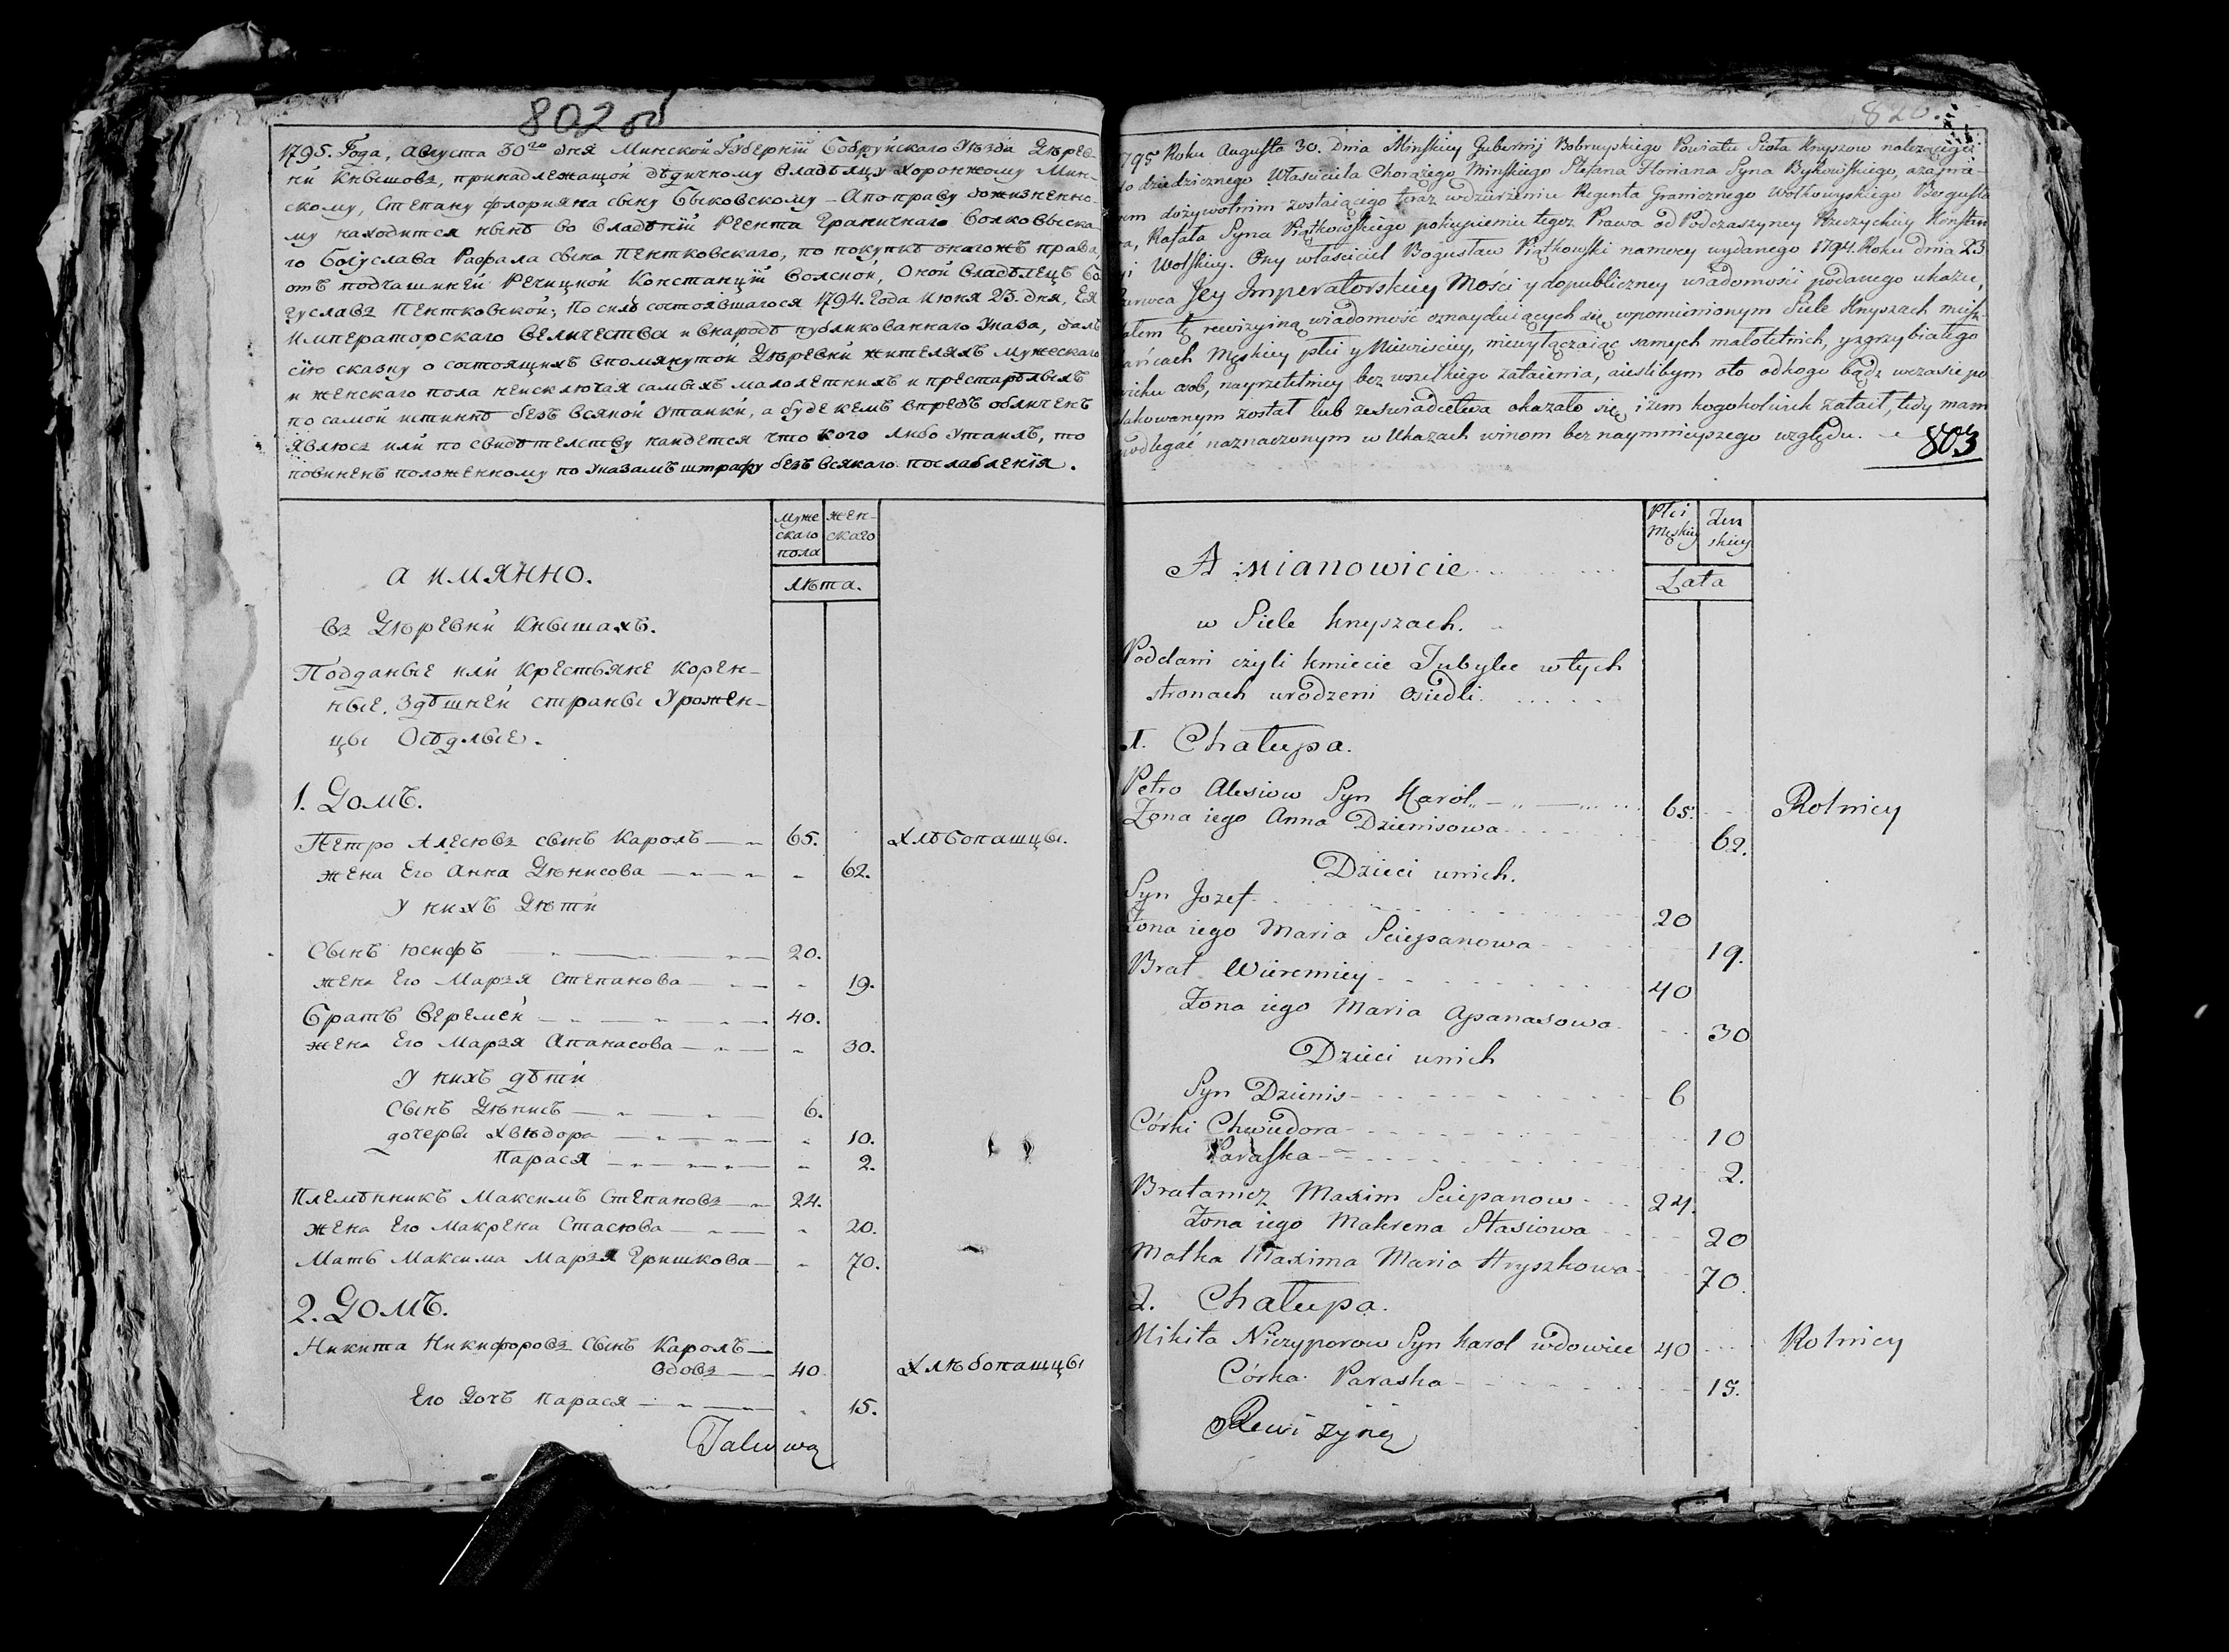 802 об
1795. Года, Августа 30го дня Минской Губернїи Бобруйскаго Уѣзда Дѣрев-
ни Кнышовъ, принадлежащой дѣдичному Владѣлцу Хоронжому Мин-
скому, Степану Флорияна сыну Быковскому – А по праву дожизненно-
му находится нынѣ во Владѣнїи Реента Граничнаго Волковыска
го Богуслава Рафала сына Пентковскаго, по покупкѣ онагожъ права,
отъ подчашиней Речицкой Констанцїи Волской, Оной Владѣлецъ Бо
гуславъ Пентковской; По силѣ состоявшагося 1794. Года Июня 23. дня, Ея
Императорскаго Величества и внародъ публикованнаго Указа, далъ
сїю сказку о состоящихъ впомянутой Дѣревни жителяхъ мужескаго
и женскаго пола неисключая самыхъ малолетнихъ и престарѣлыхъ
по самой истиннѣ безъ всякой Утайки, а буде кемъ впредъ обличенъ
явлюсь или по свидѣтелству найдется что кого либо Утаилъ, то
повиненъ положенному по Указамъ штрафу безъ всякаго послабленїя.
муже
скаго
пола
жен-
скаго
лѣта.
а имянно.
въ Дѣревни Кнышахъ.
Подданые или Крестьяне корен-
ные, здѣшней страны Урожен-
цы Осѣдлые.
1. Домъ.
Петро Алесювъ сынъ Король 65. Хлѣбопашцы.
жена Его Анна Дѣнисова 62.
У нихъ Дѣти
Сынъ Юсифъ 20.
жена Его Марья Степанова 19.
братъ Веремей 40.
жена Его Марья Апанасова 30.
У нихъ дѣти
Сынъ Дѣнисъ 6.
дочеры Хвѣдора 10.
Парася 2.
Племѣнникъ Максимъ Степановъ 24.
жена Его Макрена Стасюва 20.
Мать Максима Марья Гришкова 70.
2. Домъ.
Никита Никифоровъ сынъ Король
вдовъ 40 Хлѣбопашцы
Его Дочъ Парася 15.
820.
1795 Roku Augusta 30. Dnia Minskiey Gubernij Bobruyskiego Powiatu Sioła Knyszow należącego
do dziedzicznego Własciciela Chorążego Minskiego Stefana Floriana Syna Bykowskiego, a za pra-
wem dożywotnim zostaiącego teraz wdzierżeniu Regenta Granicznego Wołkowyskiego
Rafała Syna Piątkowskiego pokupieniu tegoż Prawa od Podczaszyney Rzeczyckiey
Wolskiey. Ony właściciel Bogusław Piątkowski namocy wydanego 1794. Roku dnia 23
Czerwca Jey Imperatorskiey Mości y dopubliczney wiadomości podanego ukazu,
dałem tę rewizyiną wiadomość oznayduiących się wpomienionym Siele Knyszach miesz-
kańcach Męskiey płci y Niewieściey, niewyłączaiąc samych małoletnich, y zgrzybiałego
wieku osób, nayrzetelniey bez wszelkiego zataienia, aiesliby m oto odkogo bądz wczasie po
szlakowanym został lub zeświadectwa okazało się, iżem kogokolwiek zataił, tedy mam
podlegać naznaczonym w Ukazach winom bez naymnieyszego względu.
803
Płci
Męskiey
Żeń
skiey
Lata
A mianowicie
w Siele Knyszach.
Poddani czyli kmiecie Tubylce w tych
stronach urodzeni Osiedli.
1. Chałupa.
Petro Alesiow Syn Karol 65. Rolnicy
Żona iego Anna Dzienisowa 62.
Dzieci unich.
Syn Jozef 20
Żona iego Maria Sciepanowa 19.
Brat Wieremiey 40
Żona iego Maria Apanasowa 30
Dzieci unich
Syn Dzienis 6
Córki Chwiedora 10
Paraska 2.
Bratanicz Maxim Sciepanow 24.
Żona iego Makrena Stasiowa 20
Matka Maxima Maria Hryszkowa 70.
2. Chałupa.
Mikita Niczyporow Syn Karol wdowiec 40 Rolnicy
Córka Paraska 15.
Rewizyiną